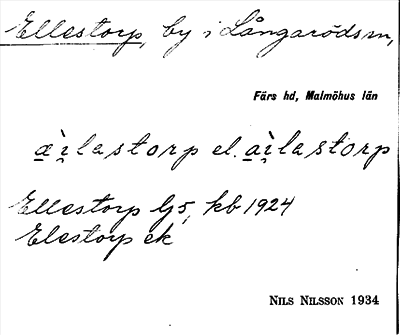 Ellestorp, by i Långaröds sn,
Färs hd, Malmöhus län
æ̀i̯lastorp el. ài̯lastorp
Ellestorp Gj5, kb 1924
Elestorp ek
NILS NILSSON 1934